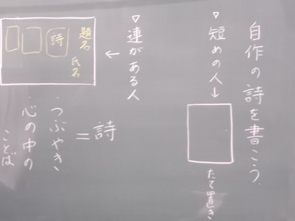 自作の詩を書こう
▽短めの人↓
たて置き
▽連がある人
↓
題名
氏名
詩
詩
=
つぶやき
心の中の
ことば